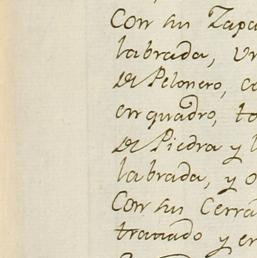 Con su Zapa
labrada, un
de Pelonero, co
en quadro, to
de Piedra y l
labrada, y o
Con su Cerra
tramado y en